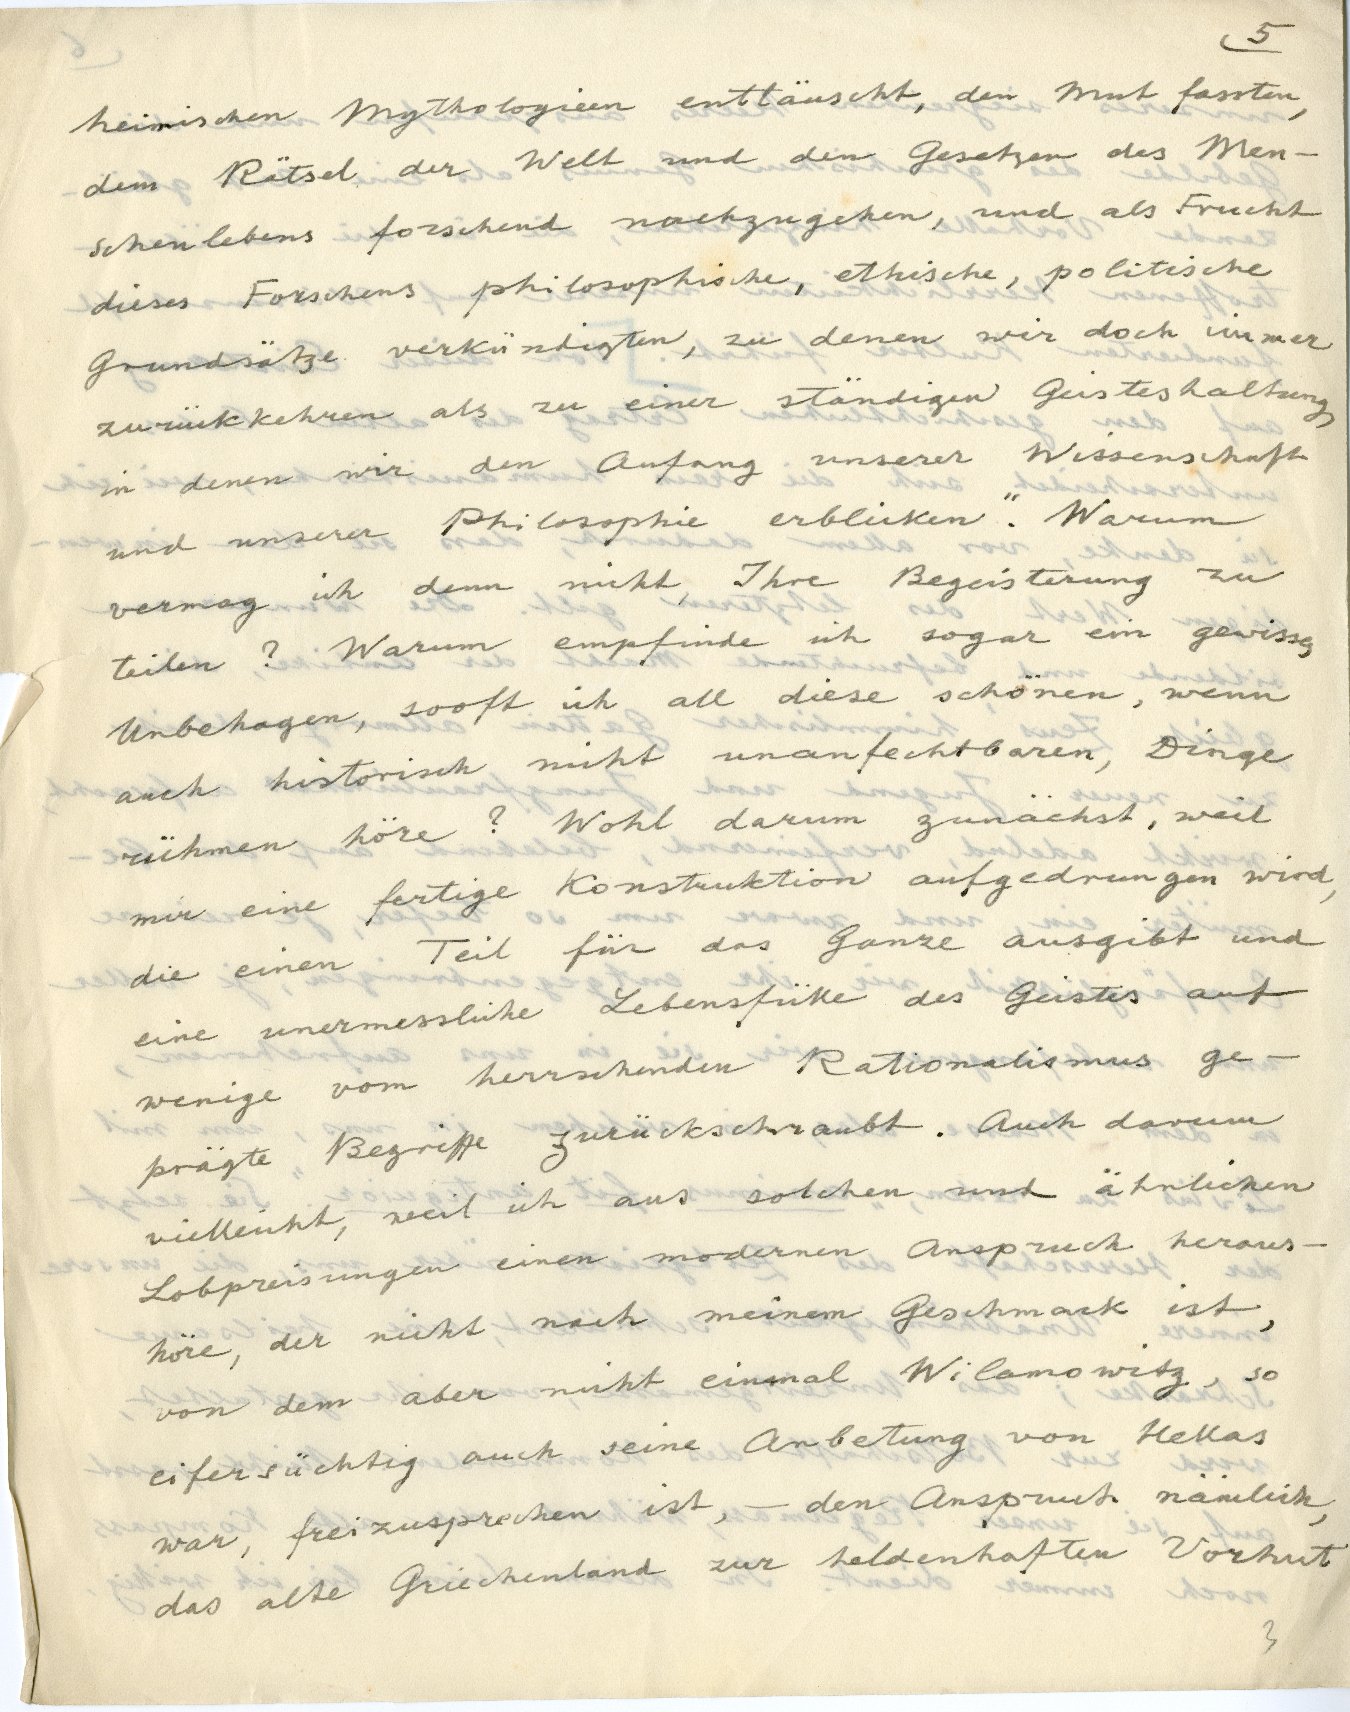 5
heimischen Mythologieen enttäuscht, den Mut fassten,
dem Rätsel der Welt und den Gesetzen des Men-
schenlebens forschend nachzugehen, und als Frucht
dieses Forschens philosophische, ethische, politische
Grundsätze verkündigten, zu denen wir doch immer
zurükkehren als zu einer ständigen Geisteshaltung,
in denen wir den Anfang unserer Wissenschaft
und unserer Philosophie erblicken". Warum
vermag ich denn nicht, Ihre Begeisterung zu
teilen? Warum empfinde ich sogar ein gewisses
Unbehagen, sooft ich all diese schönen, wenn
auch historisch nicht unanfechtbaren, Dinge
rühmen höre? Wohl darum zunächst, weil
mir eine fertige Konstruktion aufgedrungen wird,
die einen Teil für das Ganze ausgibt und
eine unermessliche Lebensfülle des Geistes auf
wenige vom herrschenden Rationalismus ge-
prägte Begriffe zurückschraubt. Auch darum
vielleicht, weil ich aus solchen und ähnlichen
Lobpreisungen einen modernen Anspruch heraus-
höre, der nicht nach meinem Geschmack ist,
von dem aber nicht einmal Wilamowitz, so
eifersüchtig auch seine Anbetung von Hellas
war, freizusprechen ist, – den Anspruch nämlich,
das alte Griechenland zur heldenhaften Vorhut
3